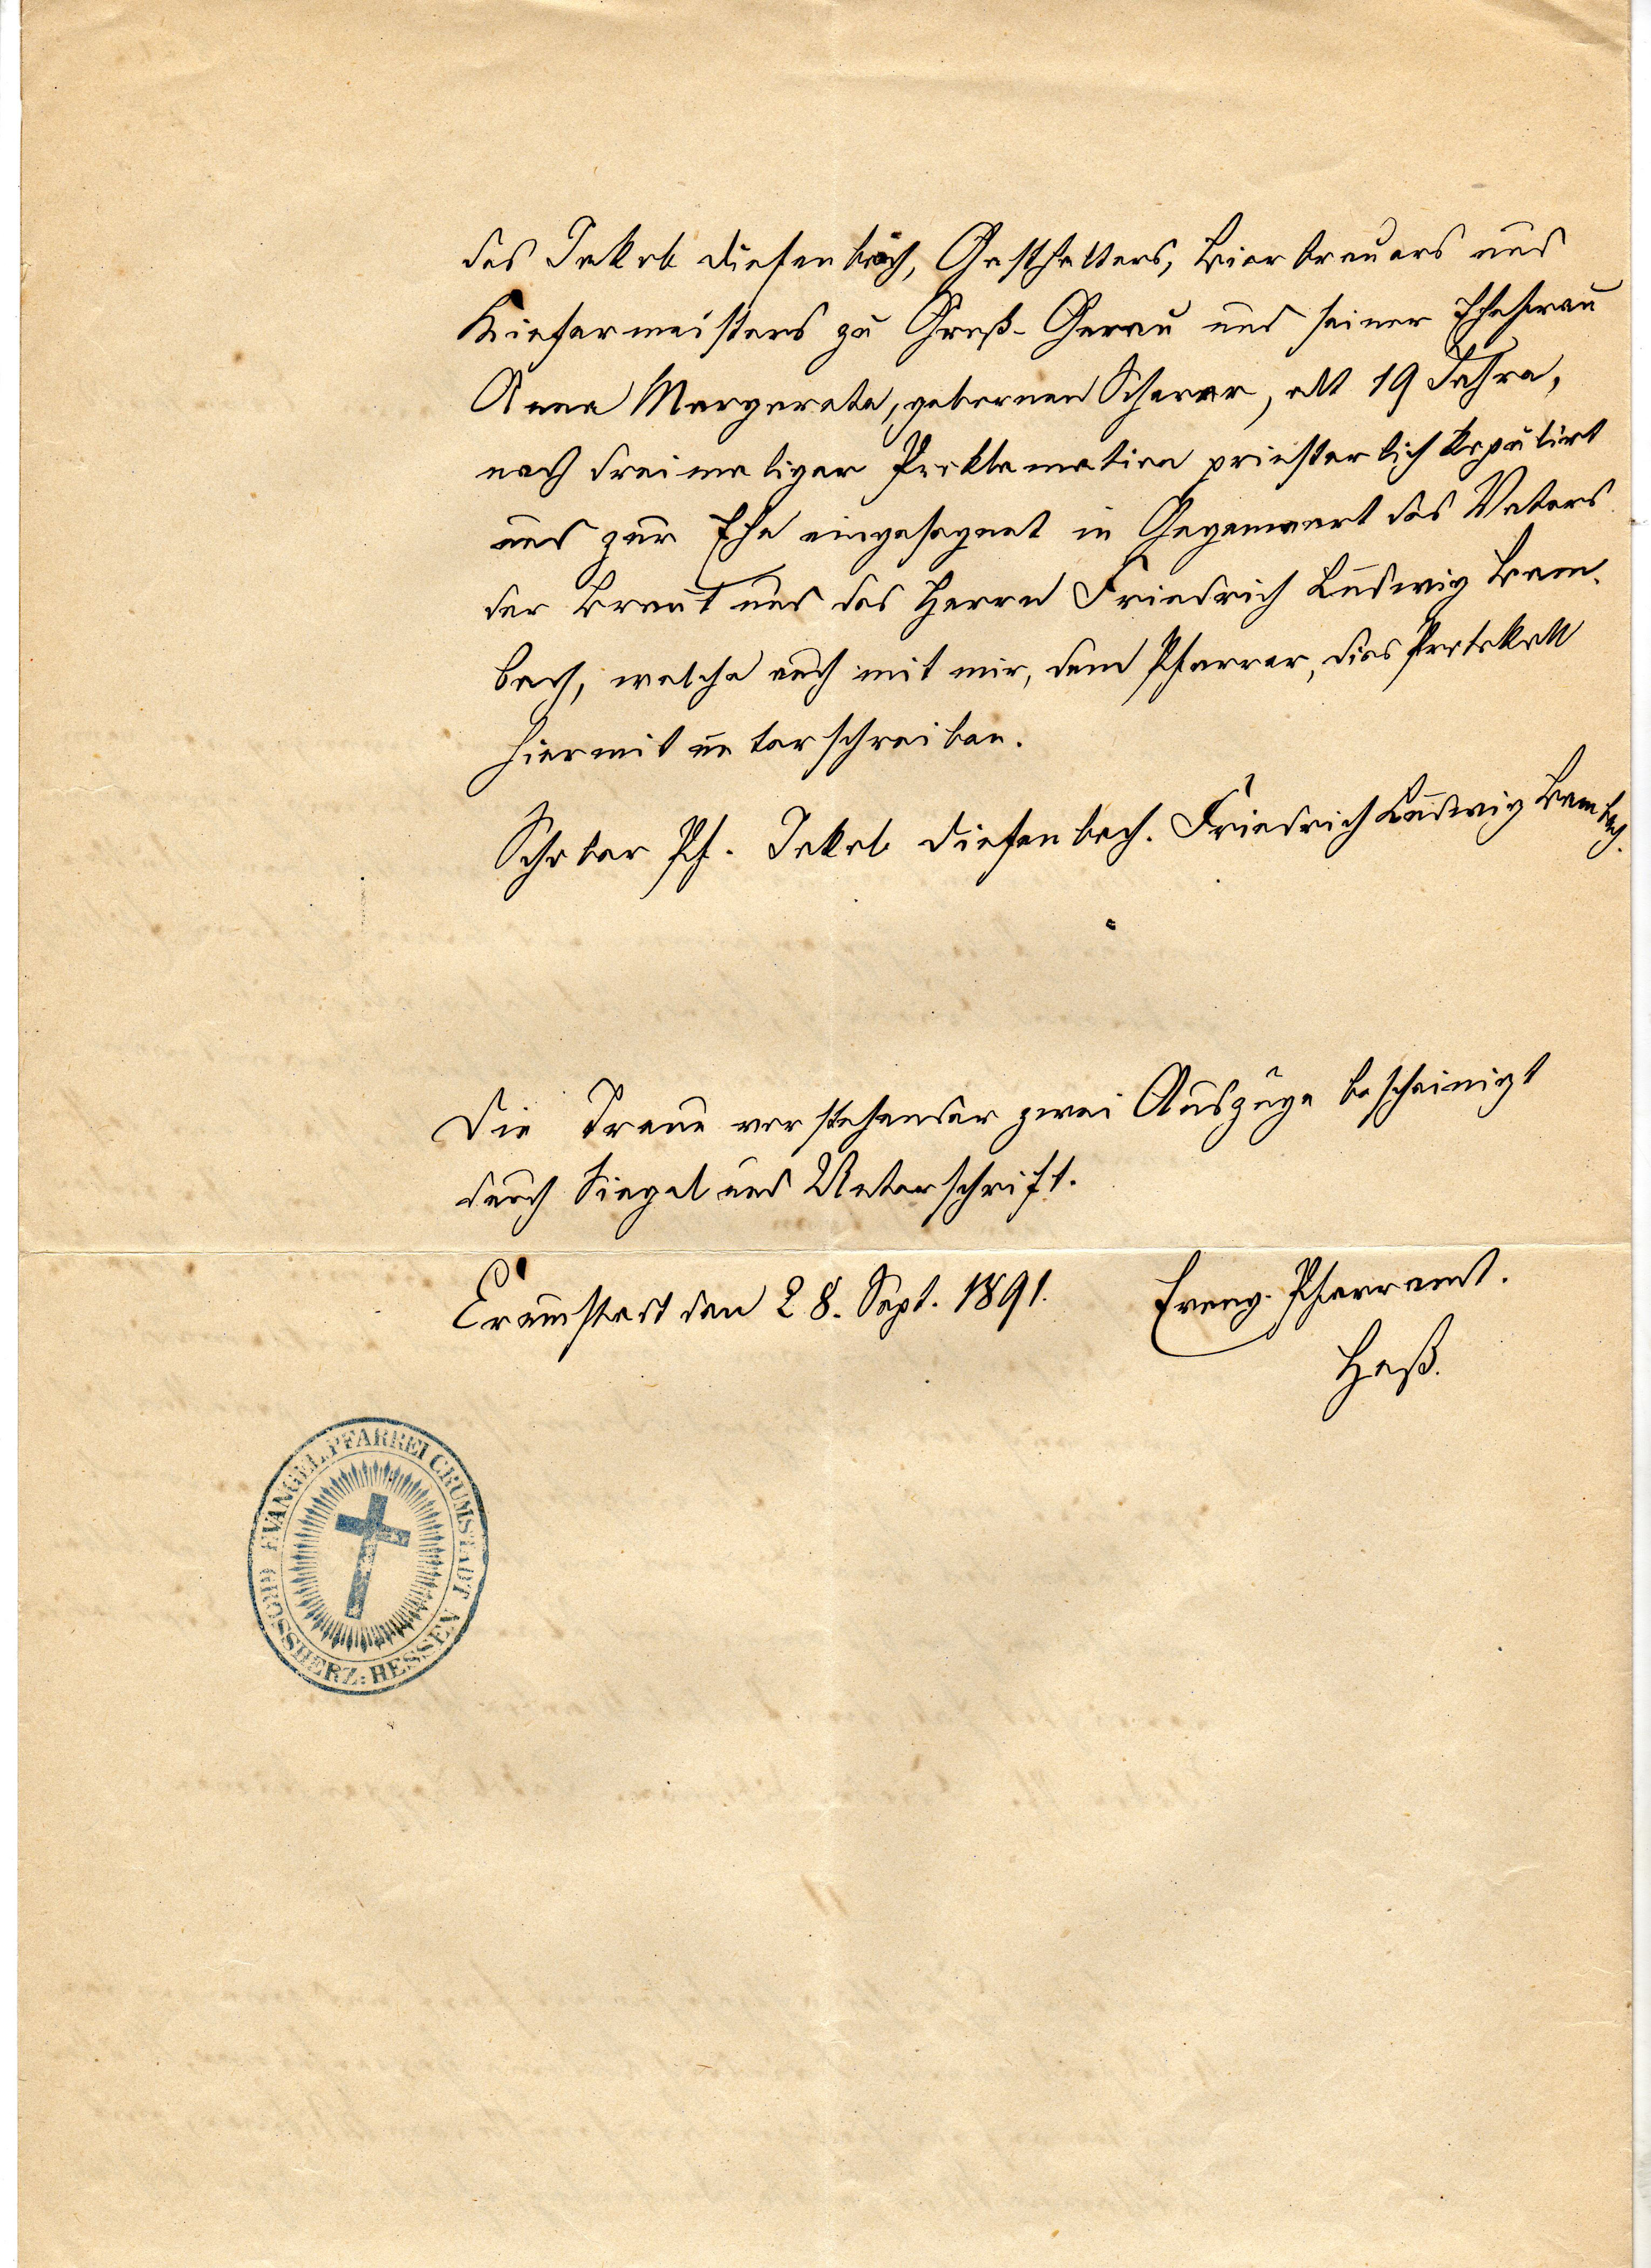 des Jakob Diefenbach, Gasthalters, Bierbrauers und
Kiefermeisters zu Groß-Gerau und seiner Ehefrau
Anna Margareta, gebornen Scherer, alt 19 Jahre,
nach dreimaliger Proklamation priesterlich kopulirt
und zur Ehe eingesegnet in Gegenwart des Vaters
der Braut und des Herrn Friedrich Ludwig Bam-
bach, welche auch mit mir, dem Pfarrer, dies Protokoll
hiermit unterschreiben.
Schober Pf. Jakob Diefenbach. Friedrich Ludwig Bambach.
Die Treue vorstehender zwei Auszüge bescheinigt
durch Siegel und Unterschrift.
Crumstadt den 28. Sept. 1891. Evang. Pfarramt.
Heß.
EVANGEL. PFARREI CRUMSTADT
GROSSHERZ: HESSEN